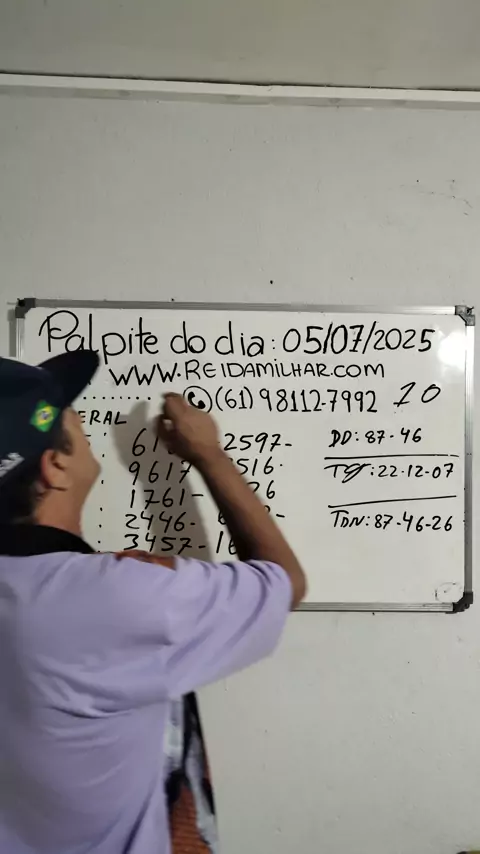 Palpite do dia: 05/07/2025
WWW.REIDAMILHAR.COM
(61) 98112-7992 10
ERAL
2597-
DD: 87-46
9617 516.
TG: 22-12-07
1761- 26
2446-
TDN: 87-46-26
3457-16